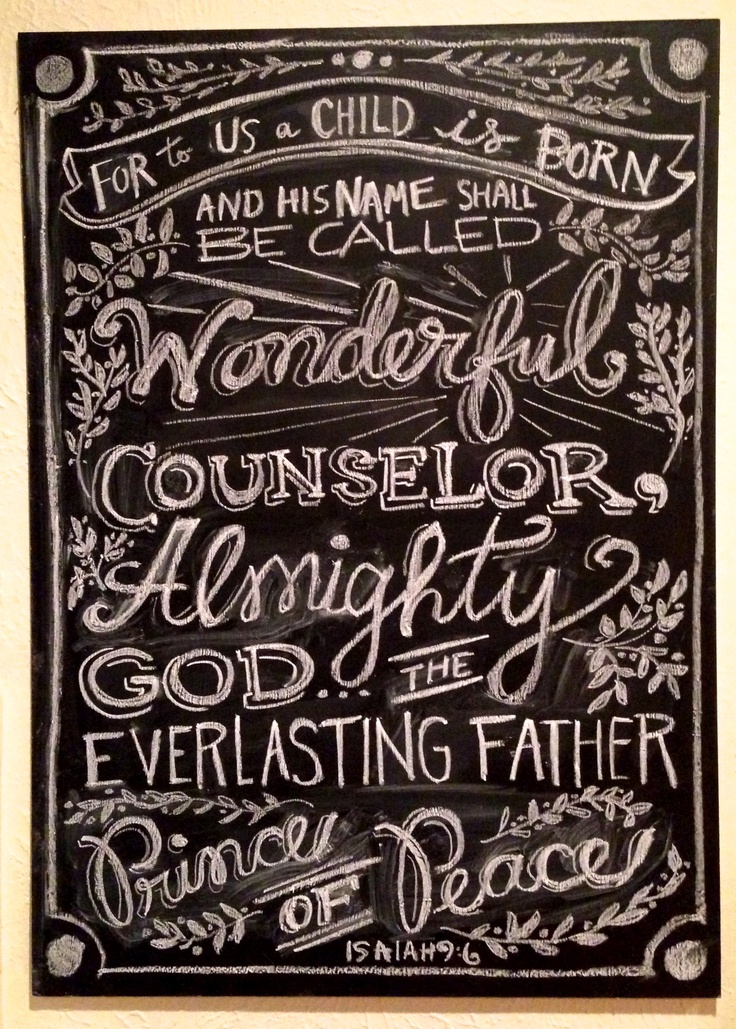 FOR to US a CHILD is BORN
AND HIS NAME SHALL
BE CALLED
Wonderful
COUNSELOR,
Almighty
GOD... THE
EVERLASTING FATHER
Prince OF Peace
ISAIAH 9:6